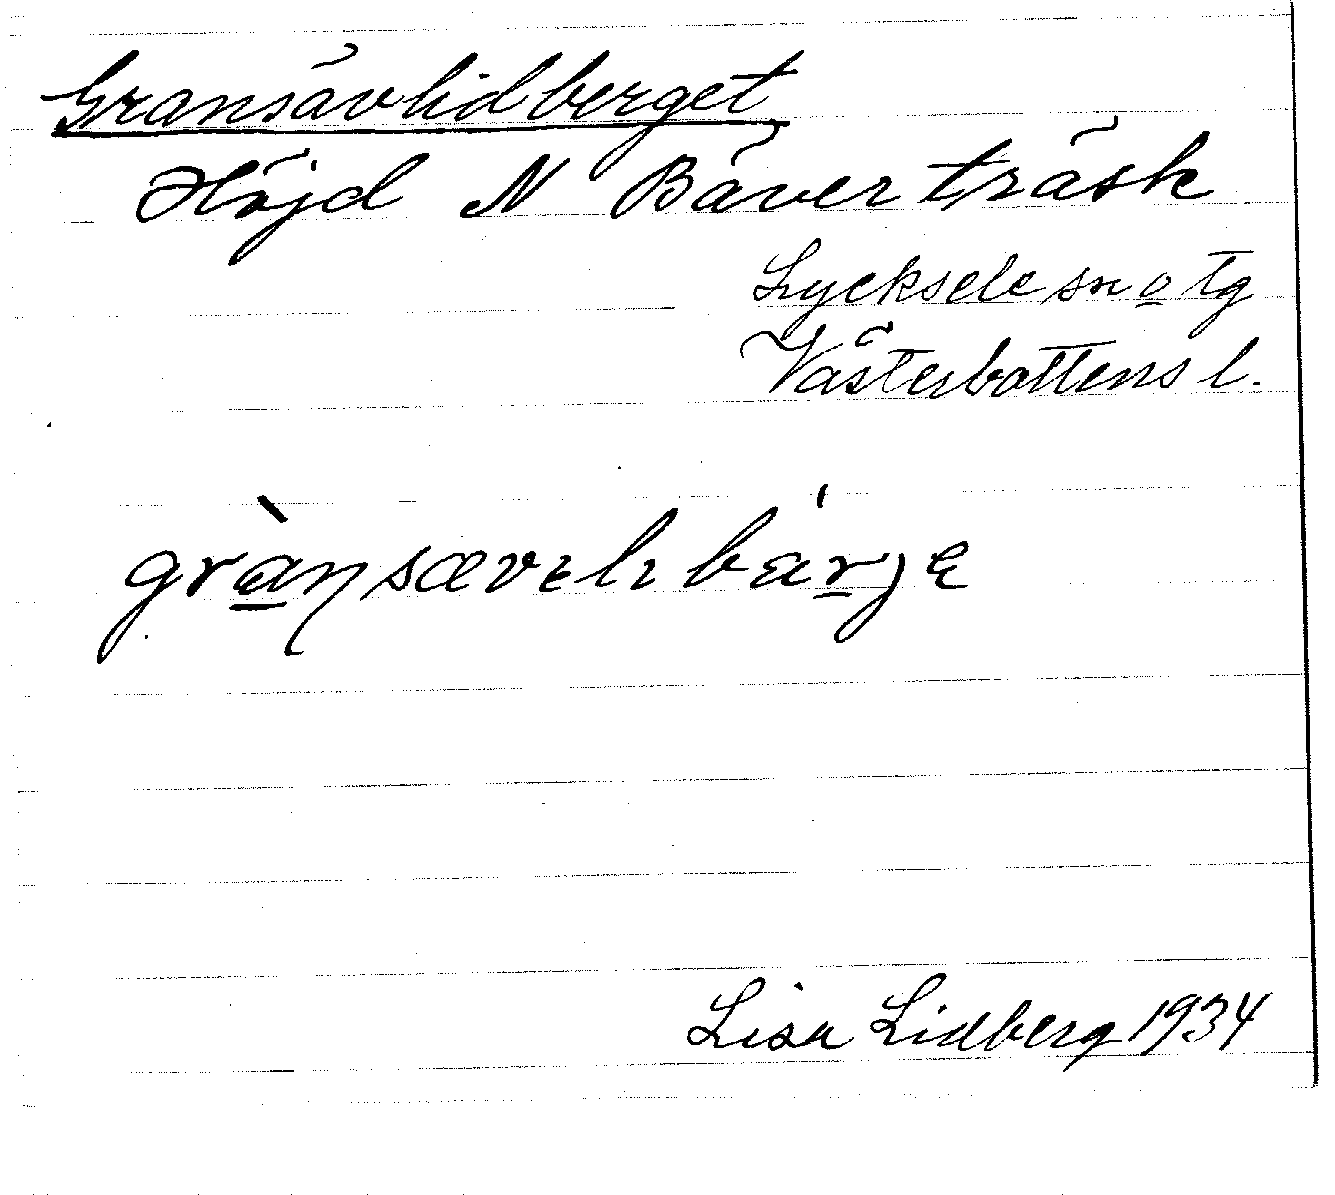 Gransävlidberget
Höjd N Bäverträsk
Lycksele sn o tg
Västerbottens l.
grànsævɩlɩbárjɐ
Lisa Lidberg 1934